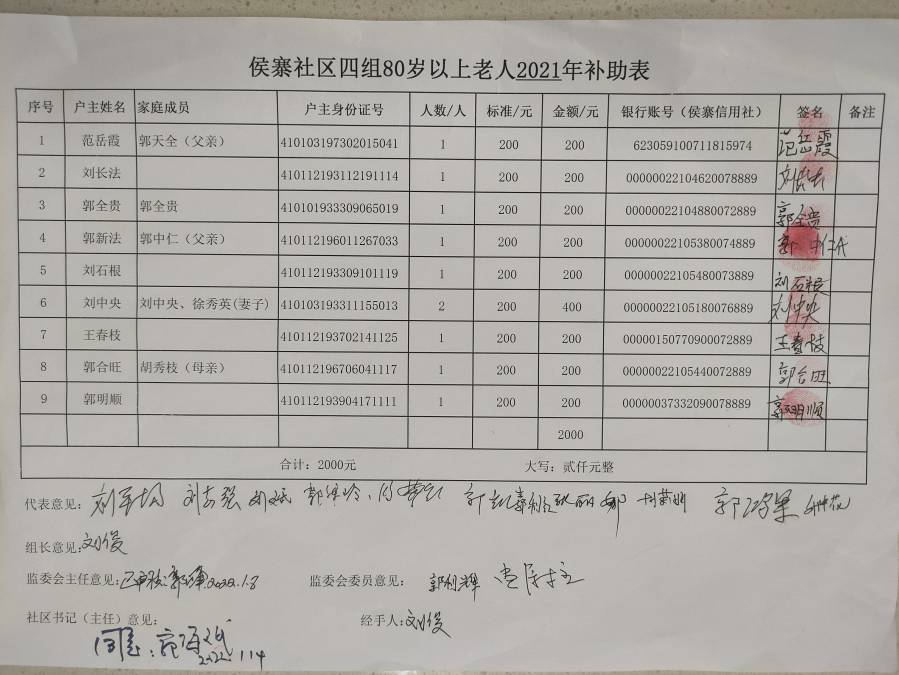 侯寨社区四组80岁以上老人2021年补助表
序号 户主姓名 家庭成员 户主身份证号 人数/人 标准/元 金额/元 银行账号（侯寨信用社） 签名 备注
1 范岳霞 郭天全（父亲） 410103197302015041 1 200 200 623059100711815974 范岳霞
2 刘长法 410112193112191114 1 200 200 00000022104620078889 刘长法
3 郭全贵 郭全贵 410101933309065019 1 200 200 00000022104880072889 郭全贵
4 郭新法 郭中仁（父亲） 410112196011267033 1 200 200 00000022105380074889 郭中仁代
5 刘石根 410112193309101119 1 200 200 00000022105480073889 刘石根
6 刘中央 刘中央、徐秀英(妻子) 410103193311155013 2 200 400 00000022105180076889 刘中央
7 王春枝 410112193702141125 1 200 200 00000150770900072889 王春枝
8 郭合旺 胡秀枝（母亲） 410112196706041117 1 200 200 00000022105440072889 郭合旺
9 郭明顺 410112193904171111 1 200 200 00000037332090078889 郭明顺
2000
合计：2000元 大写：贰仟元整
代表意见：
组长意见：刘俊
监委会主任意见：已审核 2022.1.8 监委会委员意见：
社区书记（主任）意见： 经手人：刘俊
同意：